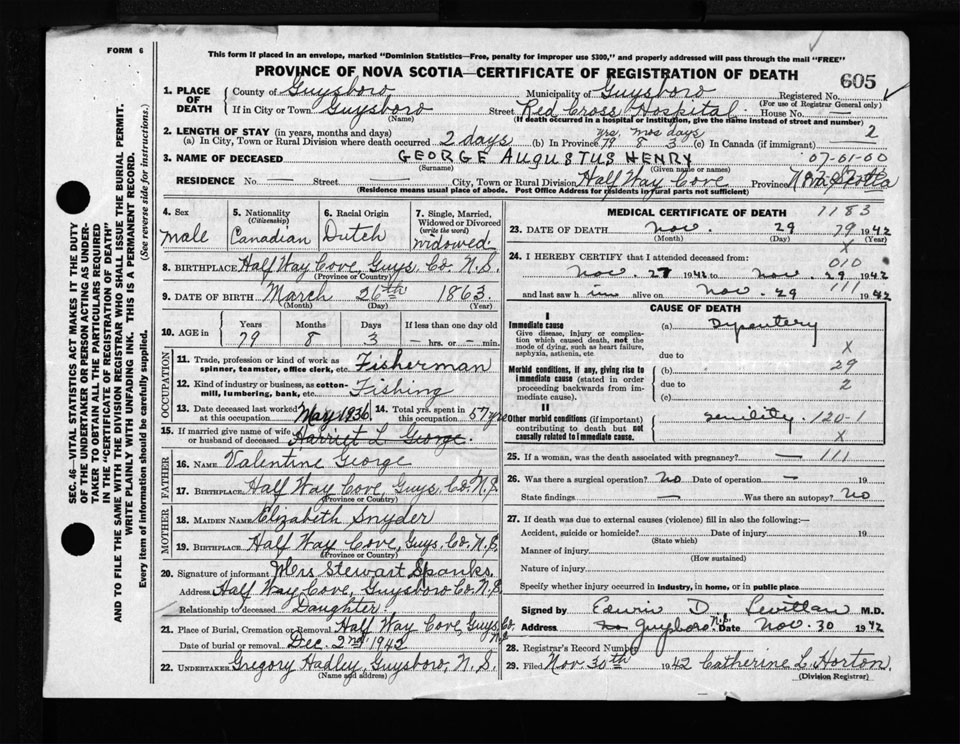 FORM 6
This form if placed in an envelope, marked "Dominion Statistics—Free, penalty for improper use $300," and properly addressed will pass through the mail "FREE"
PROVINCE OF NOVA SCOTIA—CERTIFICATE OF REGISTRATION OF DEATH
605
1. PLACE OF DEATH
County of Guysboro Municipality of Guysboro Registered No.
(For use of Registrar General only)
If in City or Town Guysboro Street Red Cross Hospital House No. —
(Name) (If death occurred in a hospital or institution, give the name instead of street and number)
2. LENGTH OF STAY (in years, months and days) yrs. mos days 2
(a) In City, Town or Rural Division where death occurred 2 days (b) In Province 79 8 3 (c) In Canada (if immigrant) —
3. NAME OF DECEASED GEORGE AUGUSTUS HENRY 07-01-00
(Surname) (Given name or names)
RESIDENCE No. — Street — City, Town or Rural Division Half Way Cove Province Nova Scotia
(Residence means usual place of abode. Post Office Address for residents in rural parts not sufficient)
4. Sex
male
5. Nationality
(Citizenship)
Canadian
6. Racial Origin
Dutch
7. Single, Married, Widowed or Divorced
(write the word)
widowed
8. BIRTHPLACE Half Way Cove, Guys. Co. N.S.
(Province or Country)
9. DATE OF BIRTH March 26th 1863
(Month) (Day) (Year)
10. AGE in
Years Months Days If less than one day old
79 8 3 — hrs. or — min.
OCCUPATION
11. Trade, profession or kind of work as spinner, teamster, office clerk, etc. Fisherman
12. Kind of industry or business, as cotton-mill, lumbering, bank, etc. Fishing
13. Date deceased last worked at this occupation May 1936 14. Total yrs. spent in this occupation 57 yrs
15. If married give name of wife or husband of deceased Harriet L George.
FATHER
16. NAME Valentine George
17. BIRTHPLACE Half Way Cove, Guys. Co. N.S.
(Province or Country)
MOTHER
18. MAIDEN NAME Elizabeth Snyder
19. BIRTHPLACE Half Way Cove, Guys. Co. N.S.
(Province or Country)
20. Signature of informant Mrs Stewart Spanks.
Address Half Way Cove, Guysboro Co. N.S.
Relationship to deceased Daughter
21. Place of Burial, Cremation or Removal Half Way Cove, Guys. Co. N.S.
Date of burial or removal Dec. 2nd 1942
22. UNDERTAKER Gregory Hadley, Guysboro, N.S.
(Name and address)
MEDICAL CERTIFICATE OF DEATH 1183
23. DATE OF DEATH Nov. 29 79 1942
(Month) (Day) X (Year)
24. I HEREBY CERTIFY that I attended deceased from: 010
Nov. 27 1942 to Nov. 29 1942
and last saw him alive on Nov. 29 111 1942
CAUSE OF DEATH
I
Immediate cause (a) Dysentery
Give disease, injury or complication which caused death, not the mode of dying, such as heart failure, asphyxia, asthenia, etc.
due to X
Morbid conditions, if any, giving rise to immediate cause (stated in order proceeding backwards from immediate cause).
(b) 29
due to 2
(c)
II
Other morbid conditions (if important) contributing to death but not causally related to immediate cause.
senility. 120-1
X
25. If a woman, was the death associated with pregnancy? — 111
26. Was there a surgical operation? No Date of operation — 19
State findings — Was there an autopsy? No
27. If death was due to external causes (violence) fill in also the following:—
Accident, suicide or homicide? Date of injury 19
(State which)
Manner of injury
(How sustained)
Nature of injury
Specify whether injury occurred in industry, in home, or in public place
Signed by Edwin D. Levittan M.D.
Address Guysboro N.S. Date Nov. 30 1942
28. Registrar's Record Number
29. Filed Nov. 30th 1942 Catherine L. Horton.
(Division Registrar)
SEC. 46—VITAL STATISTICS ACT MAKES IT THE DUTY
OF THE UNDERTAKER OR PERSON ACTING AS UNDERTAKER TO OBTAIN ALL THE PARTICULARS REQUIRED
IN THE "CERTIFICATE OF REGISTRATION OF DEATH"
AND TO FILE THE SAME WITH THE DIVISION REGISTRAR WHO SHALL ISSUE THE BURIAL PERMIT.
WRITE PLAINLY WITH UNFADING INK. THIS IS A PERMANENT RECORD.
Every item of information should be carefully supplied. (See reverse side for instructions.)